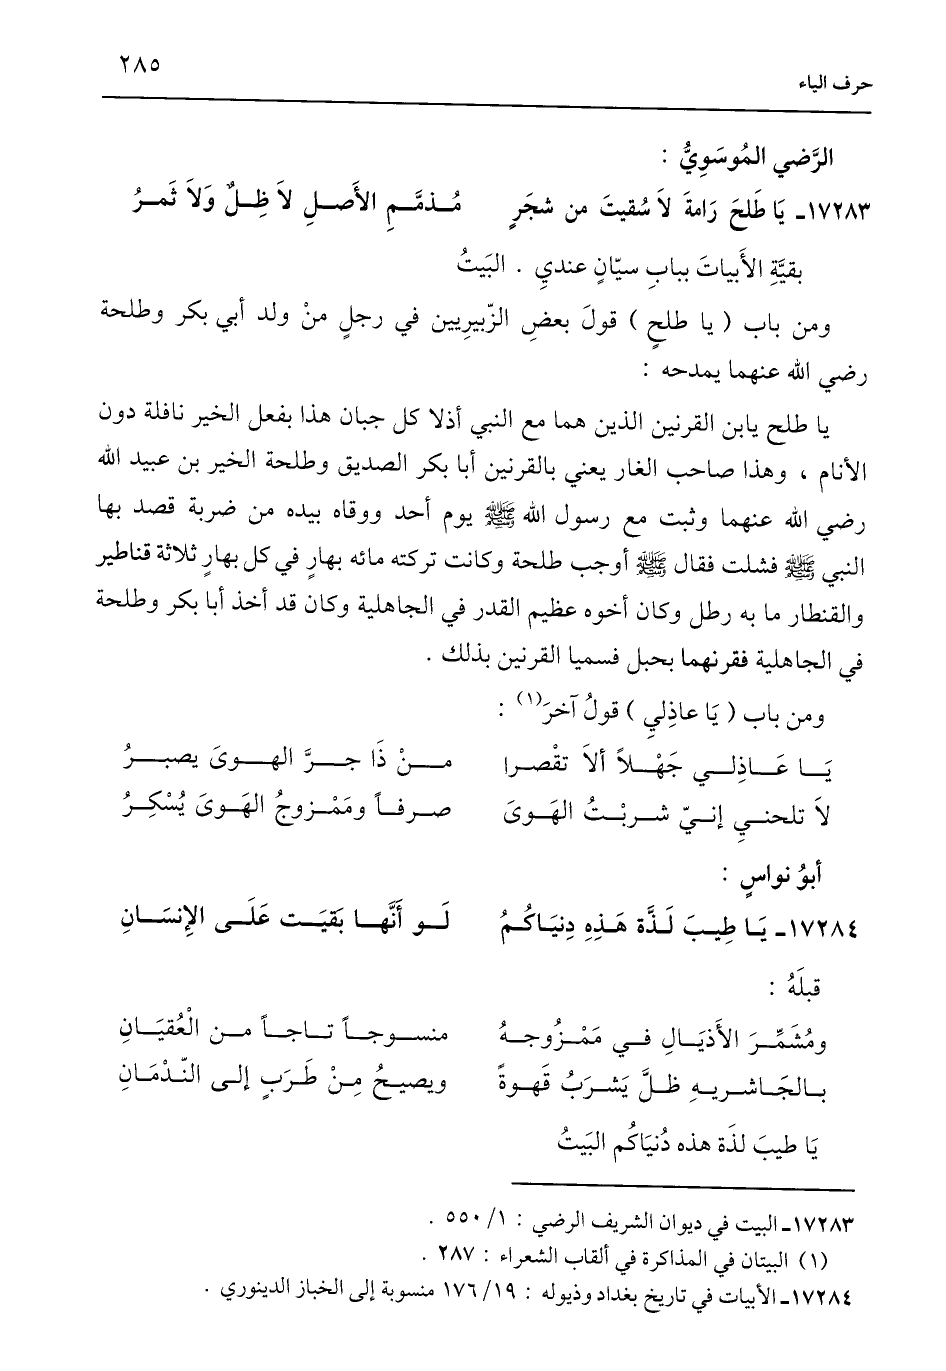 ٢٨٥
حرف الياء
الرَّضي المُوسَوِيُّ :
١٧٢٨٣ـ يَا طَلحَ رَامةَ لاَ سُقيتَ من شجَرٍ مُذمَّمِ الأَصلِ لاَ ظِلٌّ وَلاَ ثَمرُ
بقيَّةِ الأَبياتَ ببابِ سيّانٍ عندي . البَيتُ
ومن باب ( يا طلح ) قولَ بعضِ الزّبيريين في رجلٍ منْ ولد أبي بكر وطلحة
رضي الله عنهما يمدحه :
يا طلح يابن القرنين الذين هما مع النبي أذلا كل جبان هذا بفعل الخير نافلة دون
الأنام ، وهذا صاحب الغار يعني بالقرنين أبا بكر الصديق وطلحة الخير بن عبيد الله
رضي الله عنهما وثبت مع رسول الله ﷺ يوم أحد ووقاه بيده من ضربة قصد بها
النبي ﷺ فشلت فقال ﷺ أوجب طلحة وكانت تركته مائه بهارٍ في كل بهارٍ ثلاثة قناطير
والقنطار ما به رطل وكان أخوه عظيم القدر في الجاهلية وكان قد أخذ أبا بكر وطلحة
في الجاهلية فقرنهما بحبل فسميا القرنين بذلك .
ومن باب ( يَا عاذِلي ) قولُ آخرَ(١) :
يَا عَاذِلي جَهْلاً ألاَ تقْصرا منْ ذَا جرَّ الهوىَ يصبرُ
لاَ تلحني إنيّ شربْتُ الهَوىَ صرفاً ومَمْزوجُ الهَوىَ يُسْكِرُ
أبوُ نواسٍ :
١٧٢٨٤ـ يَا طِيبَ لَذَّة هَذِهِ دِنيَاكُمُ لَو أَنَّها بَقيَت عَلَى الإِنسَانِ
قبلَهُ :
ومُشَمِّرَ الأَذيَالِ في مَمْزوجهُ منسوجاً تاجاً من الْعُقيَانِ
بالجَاشريهِ ظلَّ يَشربُ قَهوةً ويصيحُ مِنْ طَرَبٍ إلى النّدْمَانِ
يَا طيبَ لذَة هذه دُنيَاكُم البَيتُ
١٧٢٨٣ـ البيت في ديوان الشريف الرضي : ١/ ٥٥٠ .
(١) البيتان في المذاكرة في ألقاب الشعراء : ٢٨٧ .
١٧٢٨٤ـ الأبيات في تاريخ بغداد وذيوله : ١٩/ ١٧٦ منسوبة إلى الخباز الدينوري .